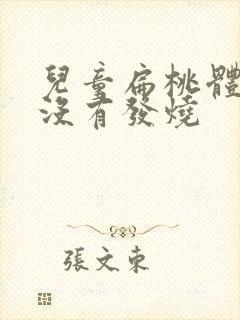 兒童扁桃體
沒有發燒
張文東